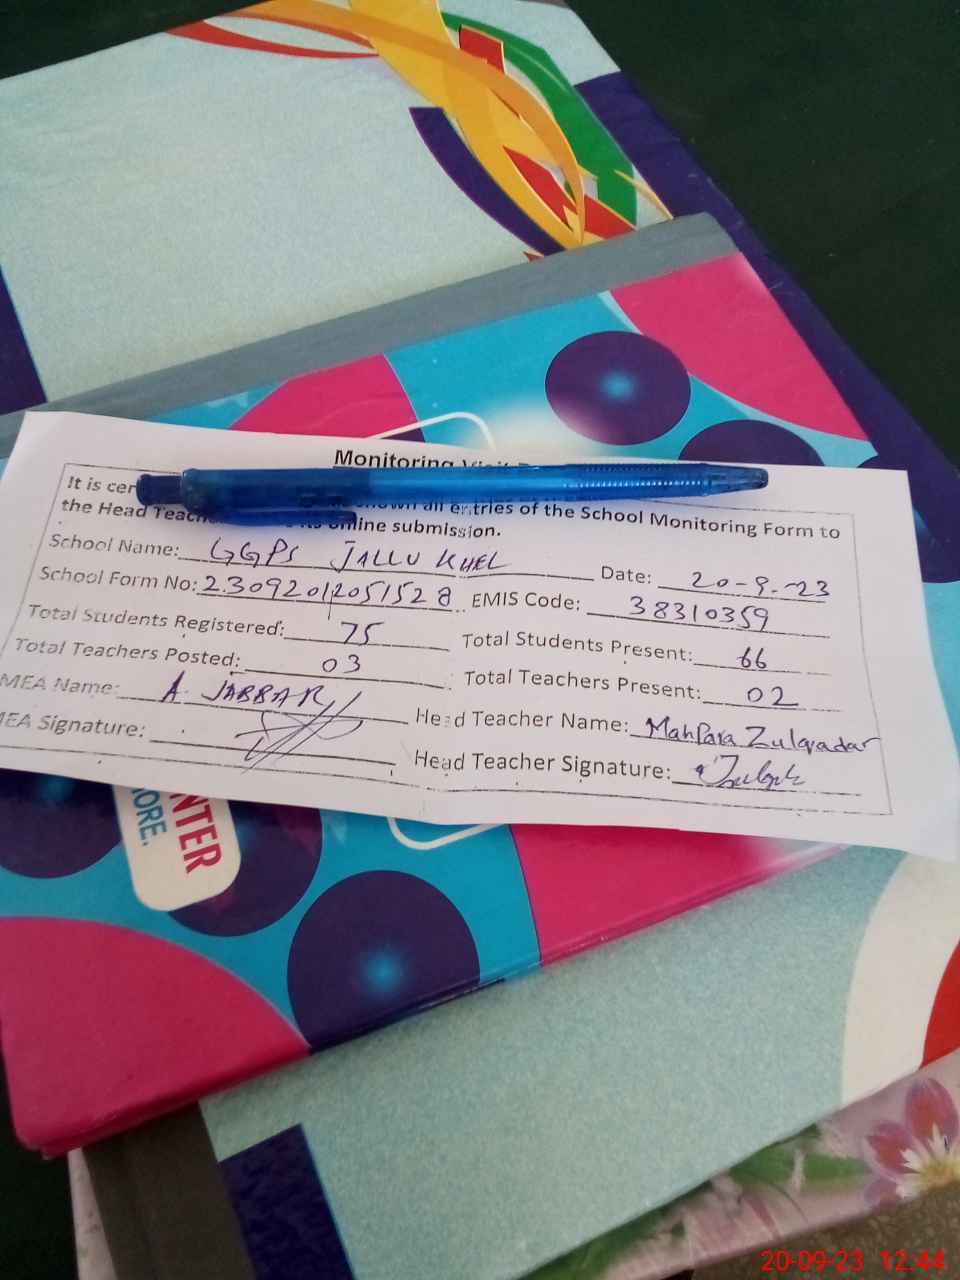 Monitoring Visit
It is cer
all entries of the School Monitoring Form to
the Head Teac online submission.
School Name: GGPS JALLU KHEL
Date: 20-9-23
School Form No: 23092012051528
EMIS Code: 38310359
Total Students Registered: 75
Total Students Present: 66
Total Teachers Posted: 03
Total Teachers Present: 02
MEA Name: A. JABBAR
Head Teacher Name: MahPara Zulqadar
MEA Signature:
Head Teacher Signature:
NTER
ORE.
20-09-23 12:44